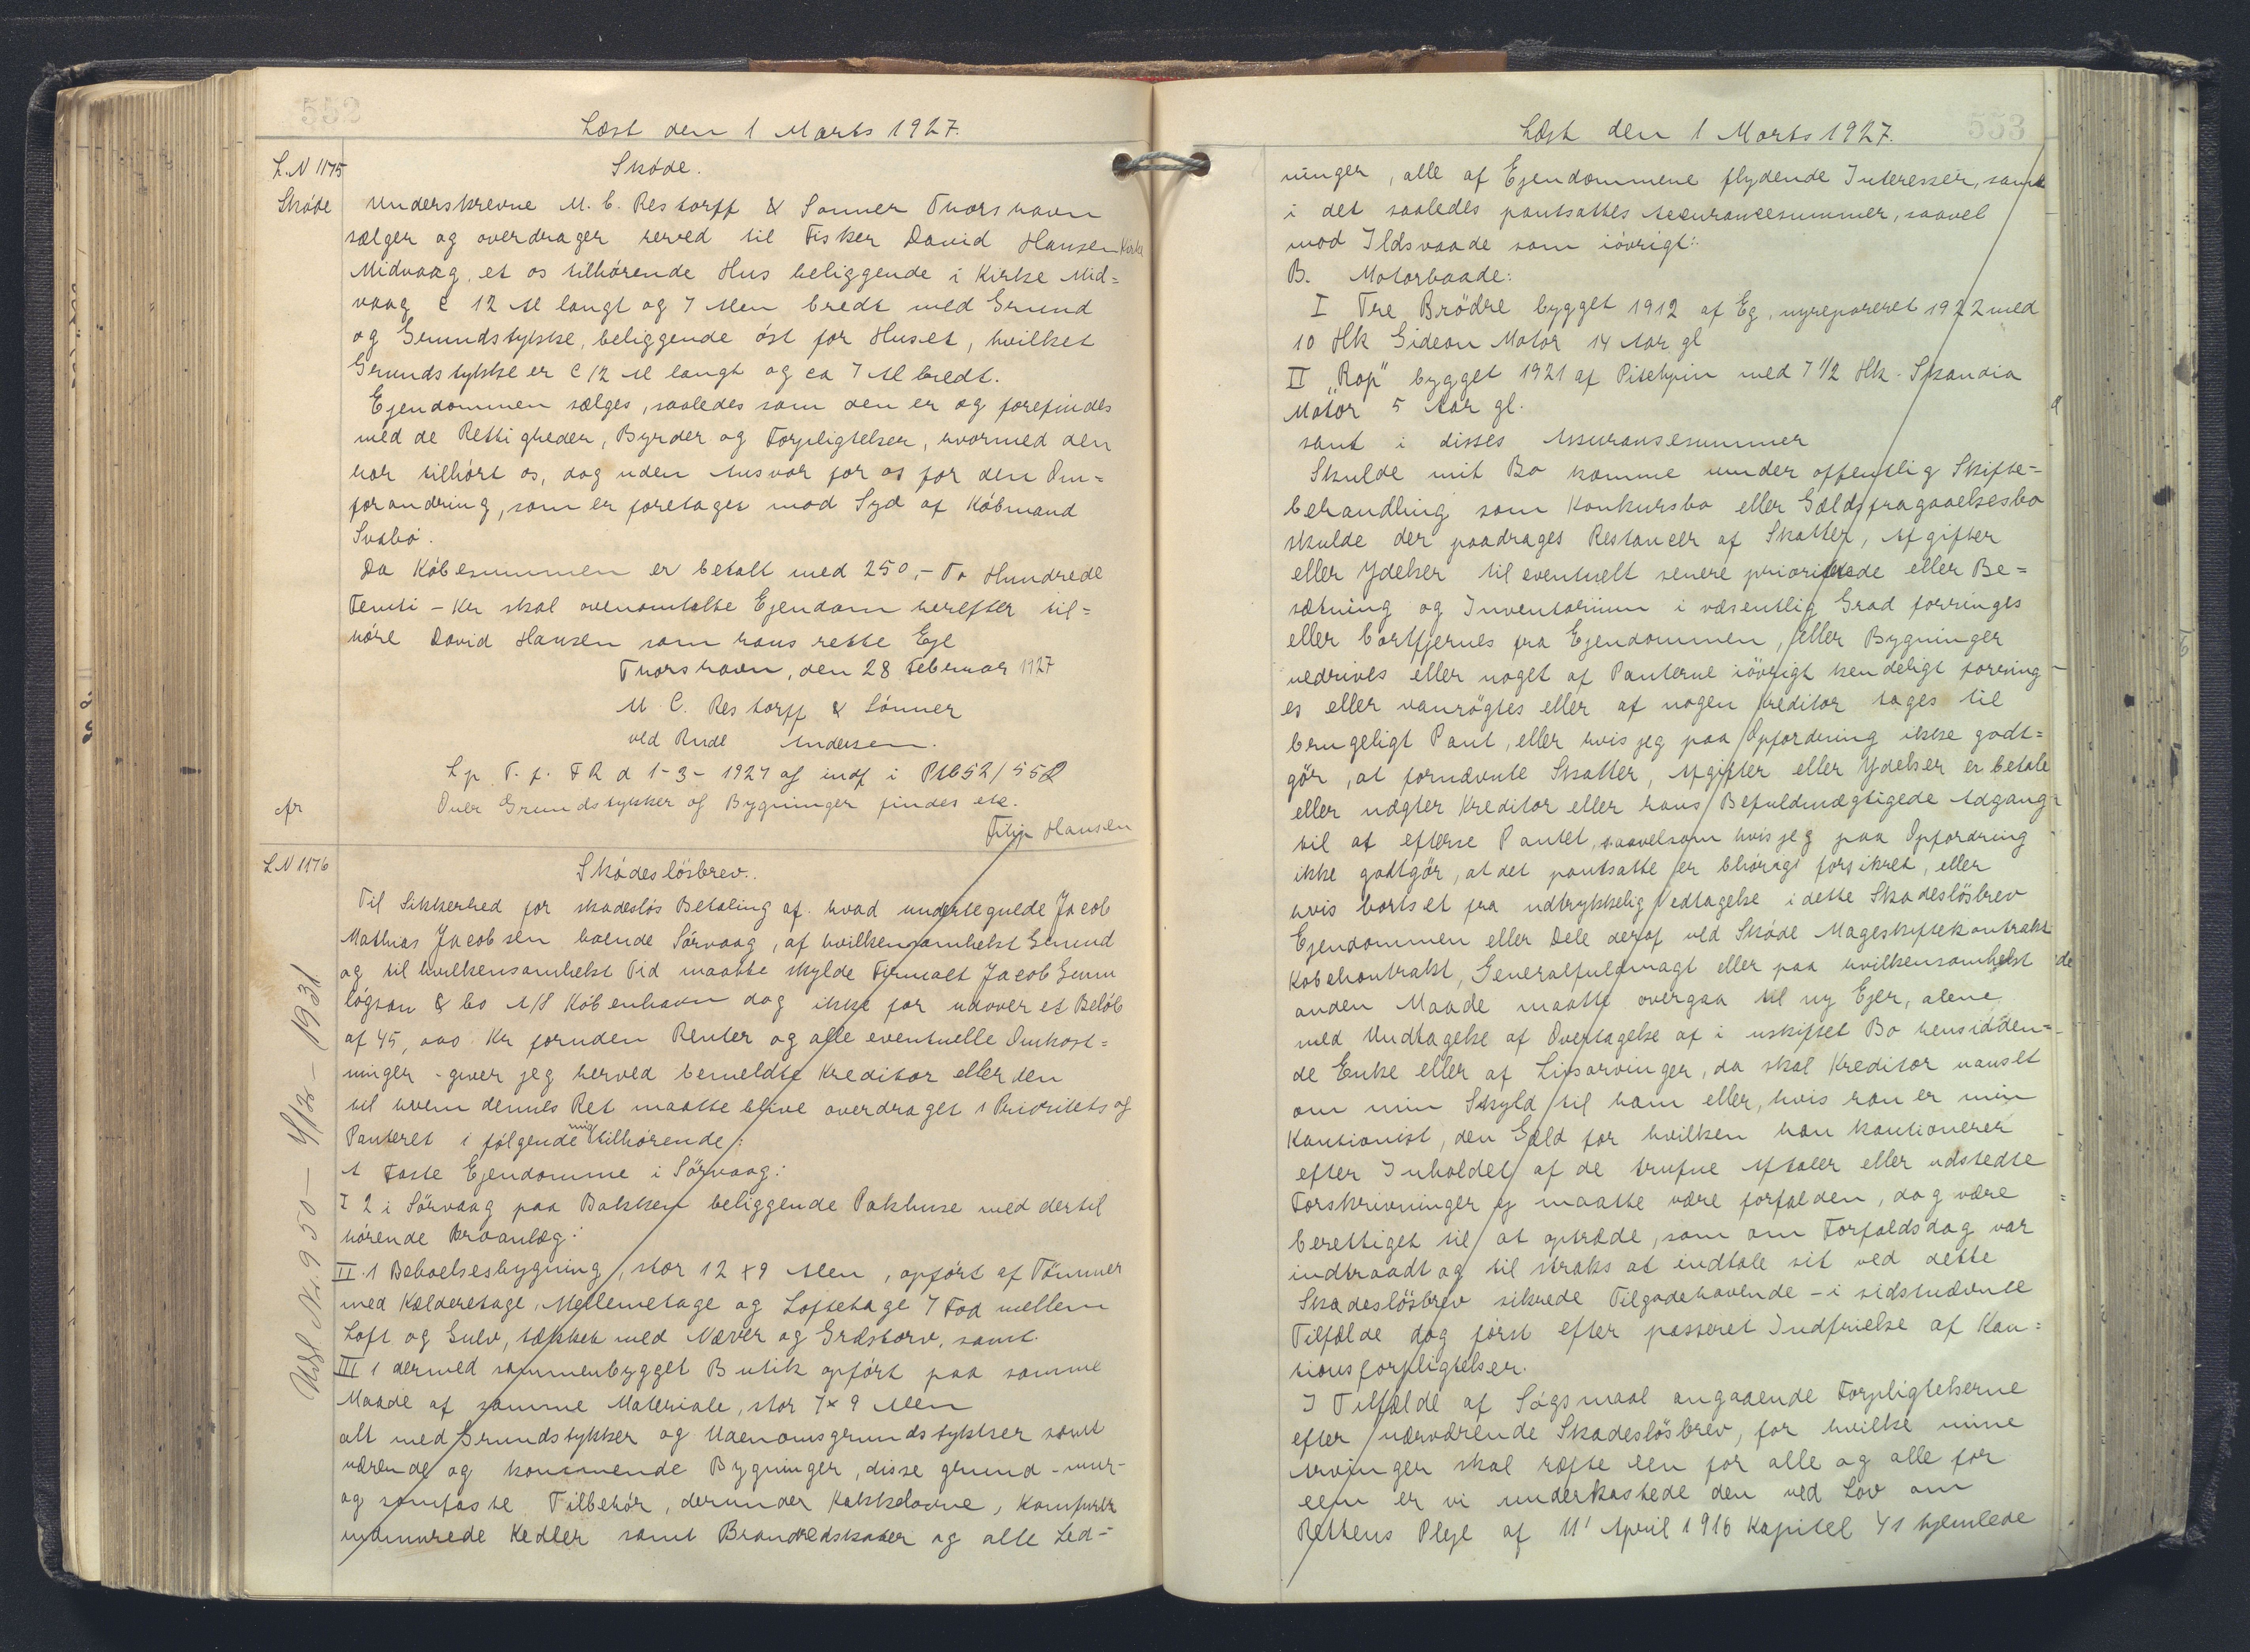 552
Læst den 1 Marts 1927.
L.N 1175
Skøde.
Skøde
Underskrevne M. C. Restorff & Sønner Thorshavn
sælger og overdrager herved til Fisker David Hansen Kirke
Midvaag, et os tilhørende Hus beliggende i Kirke Mid=
vaag c 12 Al langt og 7 Alen bredt med Grund
og Grundstykke, beliggende øst for Huset, hvilket
Grundstykke er c 12 Al langt og ca 7 Al bredt.
Ejendommen sælges, saaledes som den er og forefindes
med de Rettigheder, Byrder og Forpligtelser, hvormed den
har tilhørt os, dog uden Ansvar for os for den Om=
forandring, som er foretaget mod Syd af Købmand
Svabo.
Da Købesummen er betalt med 250,- To Hundrede
Femti - Kr skal ovenomtalte Ejendom herefter til=
høre David Hansen som hans rette Eje
Thorshavn, den 28 Februar 1927
M. C. Restorff & Sønner
ved Rudl Andersen.
L p. T. f. F R d 1-3-1927 og indf i PtB 52/552
Over Grundstykker og Bygninger findes ete.
Afr
Filip Hansen
L N 1176
Skadesløsbrev.
Til Sikkerhed for skadesløs Betaling af hvad undertegnede Jacob
Mathias Jacobsen boende Sörvaag, af hvilkensomhelst Grund
og til hvilkensomhelst Tid maatte skylde Firmaet Jacob Gunn
løgson & Co A/S København dog ikke for udover et Beløb
af 45,000 Kr foruden Renter og alle eventuelle Omkost=
ninger - giver jeg herved bemeldte Kreditor eller den
til hvem dennes Ret maatte blive overdraget 1 Prioritets og
Panteret i følgende mig tilhørende:
A Faste Ejendomme i Sörvaag:
I 2 i Sörvaag paa Bakken beliggende Pakhuse med dertil
hørende Broanlæg:
II 1 Beboelsesbygning, stor 12 x 9 Alen, opført af Tömmer
med Kælderetage, Mellemetage og Loftetage 7 Fod mellem
Loft og Gulv, tækket med Næver og Græstorv, samt
III 1 dermed sammenbygget Butik opført paa samme
Maade af samme Materiale, stor 7 x 9 Alen
alt med Grundstykker og Udenomsgrundstykker samt
værende og kommende Bygninger, disse grund- mur-
og sømfaste Tilbehør, derunder Kakkelovne, Komfurer
indmurede Kedler samt Brandredskaber og alle Led-
Udsl Nr. 950 - 4/2 - 1931
553
Læst den 1 Marts 1927.
ninger, alle af Ejendommene flydende Interesser, samt
i det saaledes pantsattes Assurancesummer, saavel
mod Ildsvaade som iøvrigt:
B. Motorbaade:
I Tre Brödre bygget 1912 af Eg, nyrepareret 1922 med
10 Hk Gideon Motor 14 Aar gl
II "Rap" bygget 1921 af Pitchpin med 7 1/2 Hk. Skandia
Motor 5 Aar gl.
samt i disses Assuransesummer
Skulde mit Bo komme under offentlig Skifte=
behandling som Konkursbo eller Gældsfragaaelsesbo
skulde der paadrages Restancer af Skatter, Afgifter
eller Ydelser til eventuelt senere prioriterede eller Be=
sætning og Inventarium i væsentlig Grad forringes
eller bortfjernes fra Ejendommen, eller Bygninger
nedrives eller noget af Panterne iövrigt kendeligt forring
es eller vanrøgtes eller af nogen Kreditor tages til
brugeligt Pant, eller hvis jeg paa Opfordring ikke godt=
gör, at fornævnte Skatter, Afgifter eller Ydelser er betalt
eller nægter Kreditor eller hans Befuldmægtigede Adgang
til at efterse Pantet, saavelsom hvis jeg paa Opfordring
ikke godtgör, at det pantsatte er behørigt forsikret, eller
hvis bortset fra udtrykkelig Vedtagelse i dette Skadeslösbrev
Ejendommen eller Dele deraf ved Skøde Mageskiftekontrakt
Købekontrakt, Generalfuldmagt eller paa hvilkensomhelst
anden Maade maatte overgaa til ny Ejer, alene
med Undtagelse af Overtagelse af i uskiftet Bo hensidden=
de Enke eller af Livsarvinger, da skal Kreditor uanset
om min Skyld til ham eller, hvis han er min
Kautionist, den Gæld for hvilken han kautionerer
efter Indholdet af de trufne Aftaler eller udstedte
Forskrivninger ej maatte være forfalden, dog være
berettiget til at optræde, som om Forfaldsdag var
indtraadt og til straks at indtale sit ved dette
Skadeslösbrev sikrede Tilgodehavende - i sidstnævnte
Tilfælde dog först efter passeret Indfrielse af Kau=
tionsforpligtelser.
I Tilfælde af Søgsmaal angaaende Forpligtelserne
efter nærværende Skadeslösbrev, for hvilke mine
Arvinger skal ræfte een for alle og alle for
een er vi underkastede den ved Lov om
Rettens Pleje af 11' April 1916 Kapitel 41 hjemlede